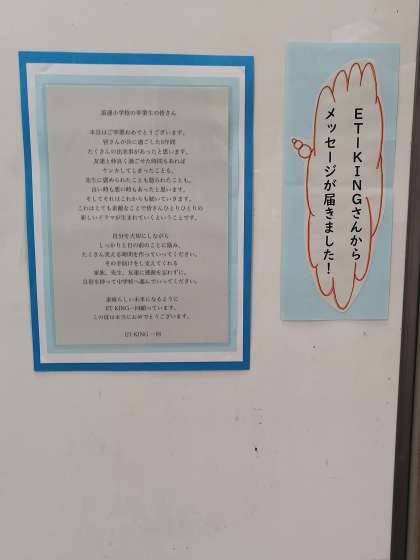 浪速小学校の卒業生の皆さん
本日はご卒業おめでとうございます。
皆さんが共に過ごした6年間
たくさんの出来事があったと思います。
友達と仲良く過ごせた時間もあれば
ケンカしてしまったことも、
先生に褒められたことも怒られたことも。
良い時も悪い時もあったと思います。
そしてそれはこれからも続いていきます。
これはとても素敵なことで皆さんひとりひとりの
新しいドラマが生まれていくということです。
自分を大切にしながら
しっかりと目の前のことに励み、
たくさん笑える時間を作っていってください。
その手助けをし支えてくれる
家族、先生、友達に感謝を忘れずに、
自信を持って中学校へ進んでいってください。
素晴らしい未来になるように
ET-KING一同願っています。
この度は本当におめでとうございます。
ET-KING 一同
ETｰKINGさんから
メッセージが届きました！